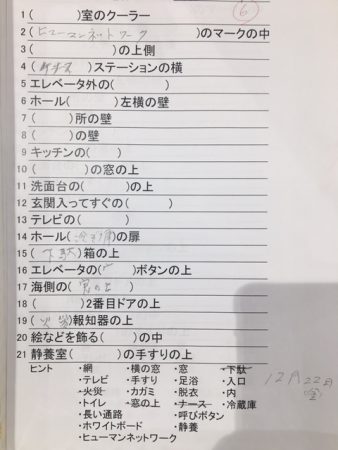 ⑥
1 (　　　)室のクーラー
2 (ヒューマンネットワーク　　　)のマークの中
3 (　　　)の上側
4 (ナース)ステーションの横
5 エレベータ外の(　　　)
6 ホール(　　　)左横の壁
7 (　　　)所の壁
8 (　　　)の壁
9 キッチンの(　　　)
10 (　　　)の窓の上
11 洗面台の(　　　)の上
12 玄関入ってすぐの(　　　)
13 テレビの(　　　)
14 ホール(　　　)の扉
15 (下駄)箱の上
16 エレベータの(　　　)ボタンの上
17 海側の(窓の上)
18 (　　　)2番目ドアの上
19 (火災)報知器の上
20 絵などを飾る(　　　)の中
21 静養室(　　　)の手すりの上
ヒント ・網 ・横の窓 ・窓 ・下駄
・テレビ ・手すり ・足浴 ・入口
・火災 ・カガミ ・脱衣 ・内
・トイレ ・窓の上 ・ナース ・冷蔵庫
・長い通路 ・呼びボタン
・ホワイトボード ・静養
・ヒューマンネットワーク
12月22日
金